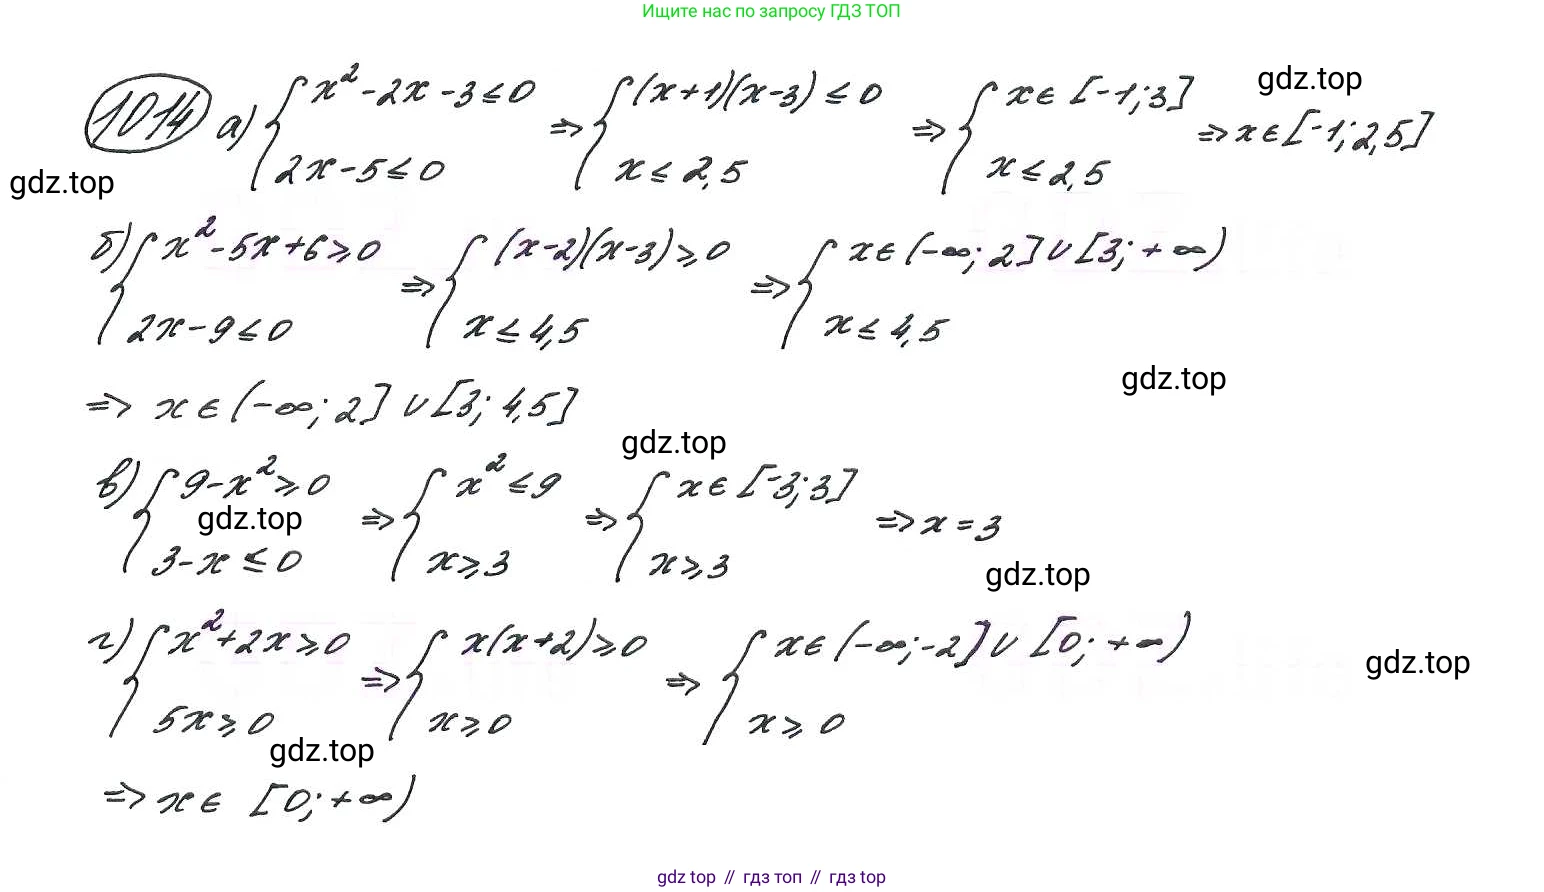 Ищите нас по запросу ГДЗ ТОП
1014 а) { x² - 2x - 3 ≤ 0 ; 2x - 5 ≤ 0 => { (x+1)(x-3) ≤ 0 ; x ≤ 2,5 => { x ∈ [-1; 3] ; x ≤ 2,5 => x ∈ [-1; 2,5]
gdz.top
gdz.top
б) { x² - 5x + 6 ≥ 0 ; 2x - 9 ≤ 0 => { (x-2)(x-3) ≥ 0 ; x ≤ 4,5 => { x ∈ (-∞; 2] ∪ [3; +∞) ; x ≤ 4,5
gdz.top
=> x ∈ (-∞; 2] ∪ [3; 4,5]
gdz.top
в) { 9 - x² ≥ 0 ; 3 - x ≤ 0 => { x² ≤ 9 ; x ≥ 3 => { x ∈ [-3; 3] ; x ≥ 3 => x = 3
gdz.top
gdz.top
г) { x² + 2x ≥ 0 ; 5x ≥ 0 => { x(x+2) ≥ 0 ; x ≥ 0 => { x ∈ (-∞; -2] ∪ [0; +∞) ; x ≥ 0
gdz.top
gdz.top
=> x ∈ [0; +∞)
gdz top // гдз топ // гдз top